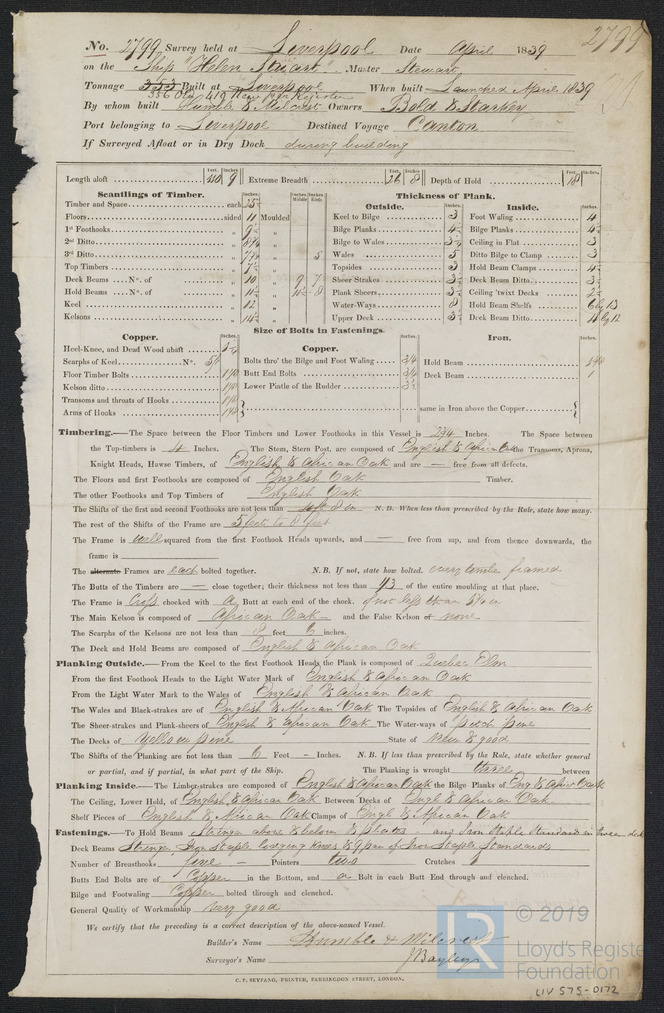 2799
No. 2799 Survey held at Liverpool Date April 1839
on the Ship "Helen Stewart" Master Stewart
Tonnage 353 Built at Liverpool When built Launched April 1839
356 Old 419 New
By whom built Humble & Milcrest Owners Bold & Starkey
Port belonging to Liverpool Destined Voyage Canton
If Surveyed Afloat or in Dry Dock during building
Feet. Inches. Feet. Inches. Feet. Inches.
Length aloft 110 9 Extreme Breadth 26 8 Depth of Hold 18
Scantlings of Timber. Thickness of Plank.
Inches. Inches Middle Inches Ends Outside. Inches. Inside. Inches.
Timber and Space each Keel to Bilge 3 Foot Waling 4
Floors sided 11 Moulded Bilge Planks Bilge Planks 4
1st Foothooks „ „ Bilge to Wales Ceiling in Flat 3
2nd Ditto „ „ Wales 5 Ditto Bilge to Clamp 3
3rd Ditto „ „ 5 Topsides 3 Hold Beam Clamps
Top Timbers „ „ Sheer Strakes Deck Beam Ditto
Deck Beams No. of „ 10 „ 9 7 Plank Sheers Ceiling 'twixt Decks
Hold Beams No. of „ „ Water-Ways 8 Hold Beam Shelfs 6 by 13
Keel „ 12 „ Upper Deck Deck Beam Ditto 11 by 12
Kelsons „ „
Size of Bolts in Fastenings.
Copper. Inches. Copper. Inches. Iron. Inches.
Heel-Knee, and Dead Wood abaft
Scarphs of Keel No. Bolts thro' the Bilge and Foot Waling 3/4 Hold Beam
Floor Timber Bolts Butt End Bolts 3/4 Deck Beam 1
Kelson ditto Lower Pintle of the Rudder
Transoms and throats of Hooks
Arms of Hooks same in Iron above the Copper
Timbering.—The Space between the Floor Timbers and Lower Foothooks in this Vessel is Inches. The Space between
the Top-timbers is 4 Inches. The Stem, Stern Post, are composed of English & African Oak the Transoms, Aprons,
Knight Heads, Hawse Timbers, of English & African Oak and are — free from all defects.
The Floors and first Foothooks are composed of English Oak Timber.
The other Foothooks and Top Timbers of English Oak
The Shifts of the first and second Foothooks are not less than N. B. When less than prescribed by the Rule, state how many.
The rest of the Shifts of the Frame are 5 feet to 8 feet
The Frame is well squared from the first Foothook Heads upwards, and — free from sap, and from thence downwards, the
frame is
The alternate Frames are each bolted together. N. B. If not, state how bolted. every timber framed
The Butts of the Timbers are — close together; their thickness not less than 1/3 of the entire moulding at that place.
The Frame is Cross chocked with a Butt at each end of the chock. if not less than 5½ in
The Main Kelson is composed of African Oak — and the False Kelson of none
The Scarphs of the Kelsons are not less than 8 feet 6 inches.
The Deck and Hold Beams are composed of English & African Oak
Planking Outside.—From the Keel to the first Foothook Heads the Plank is composed of Quebec Elm
From the first Foothook Heads to the Light Water Mark of English & African Oak
From the Light Water Mark to the Wales of English & African Oak
The Wales and Black-strakes are of English & African Oak The Topsides of English & African Oak
The Sheer-strakes and Plank-sheers of English & African Oak The Water-ways of Pitch Pine
The Decks of Yellow pine State of New & good
The Shifts of the Planking are not less than 6 Feet – Inches. N. B. If less than prescribed by the Rule, state whether general
or partial, and if partial, in what part of the Ship. The Planking is wrought three between
Planking Inside.—The Limber-strakes are composed of English & African Oak the Bilge Planks of Eng & African Oak
The Ceiling, Lower Hold, of English & African Oak Between Decks of Engl & African Oak
Shelf Pieces of English & African Oak Clamps of Engh & African Oak
Fastenings.—To Hold Beams Stringer above & below & plates – and Iron staple standard in tween deck
Deck Beams Stringer, Iron Staple lodging Knees & 9 pair of Iron Staple Standards
Number of Breasthooks five – Pointers two Crutches 1
Butts End Bolts are of Copper in the Bottom, and a Bolt in each Butt End through and clenched.
Bilge and Footwaling Copper bolted through and clenched.
General Quality of Workmanship very good
We certify that the preceding is a correct description of the above-named Vessel.
Builder's Name Humble & Milcrest
Surveyor's Name J Bayley
C. F. SEYFANG, PRINTER, FARRINGDON STREET, LONDON.
LR © 2019
Lloyd's Register
Foundation
LIV 575-0172